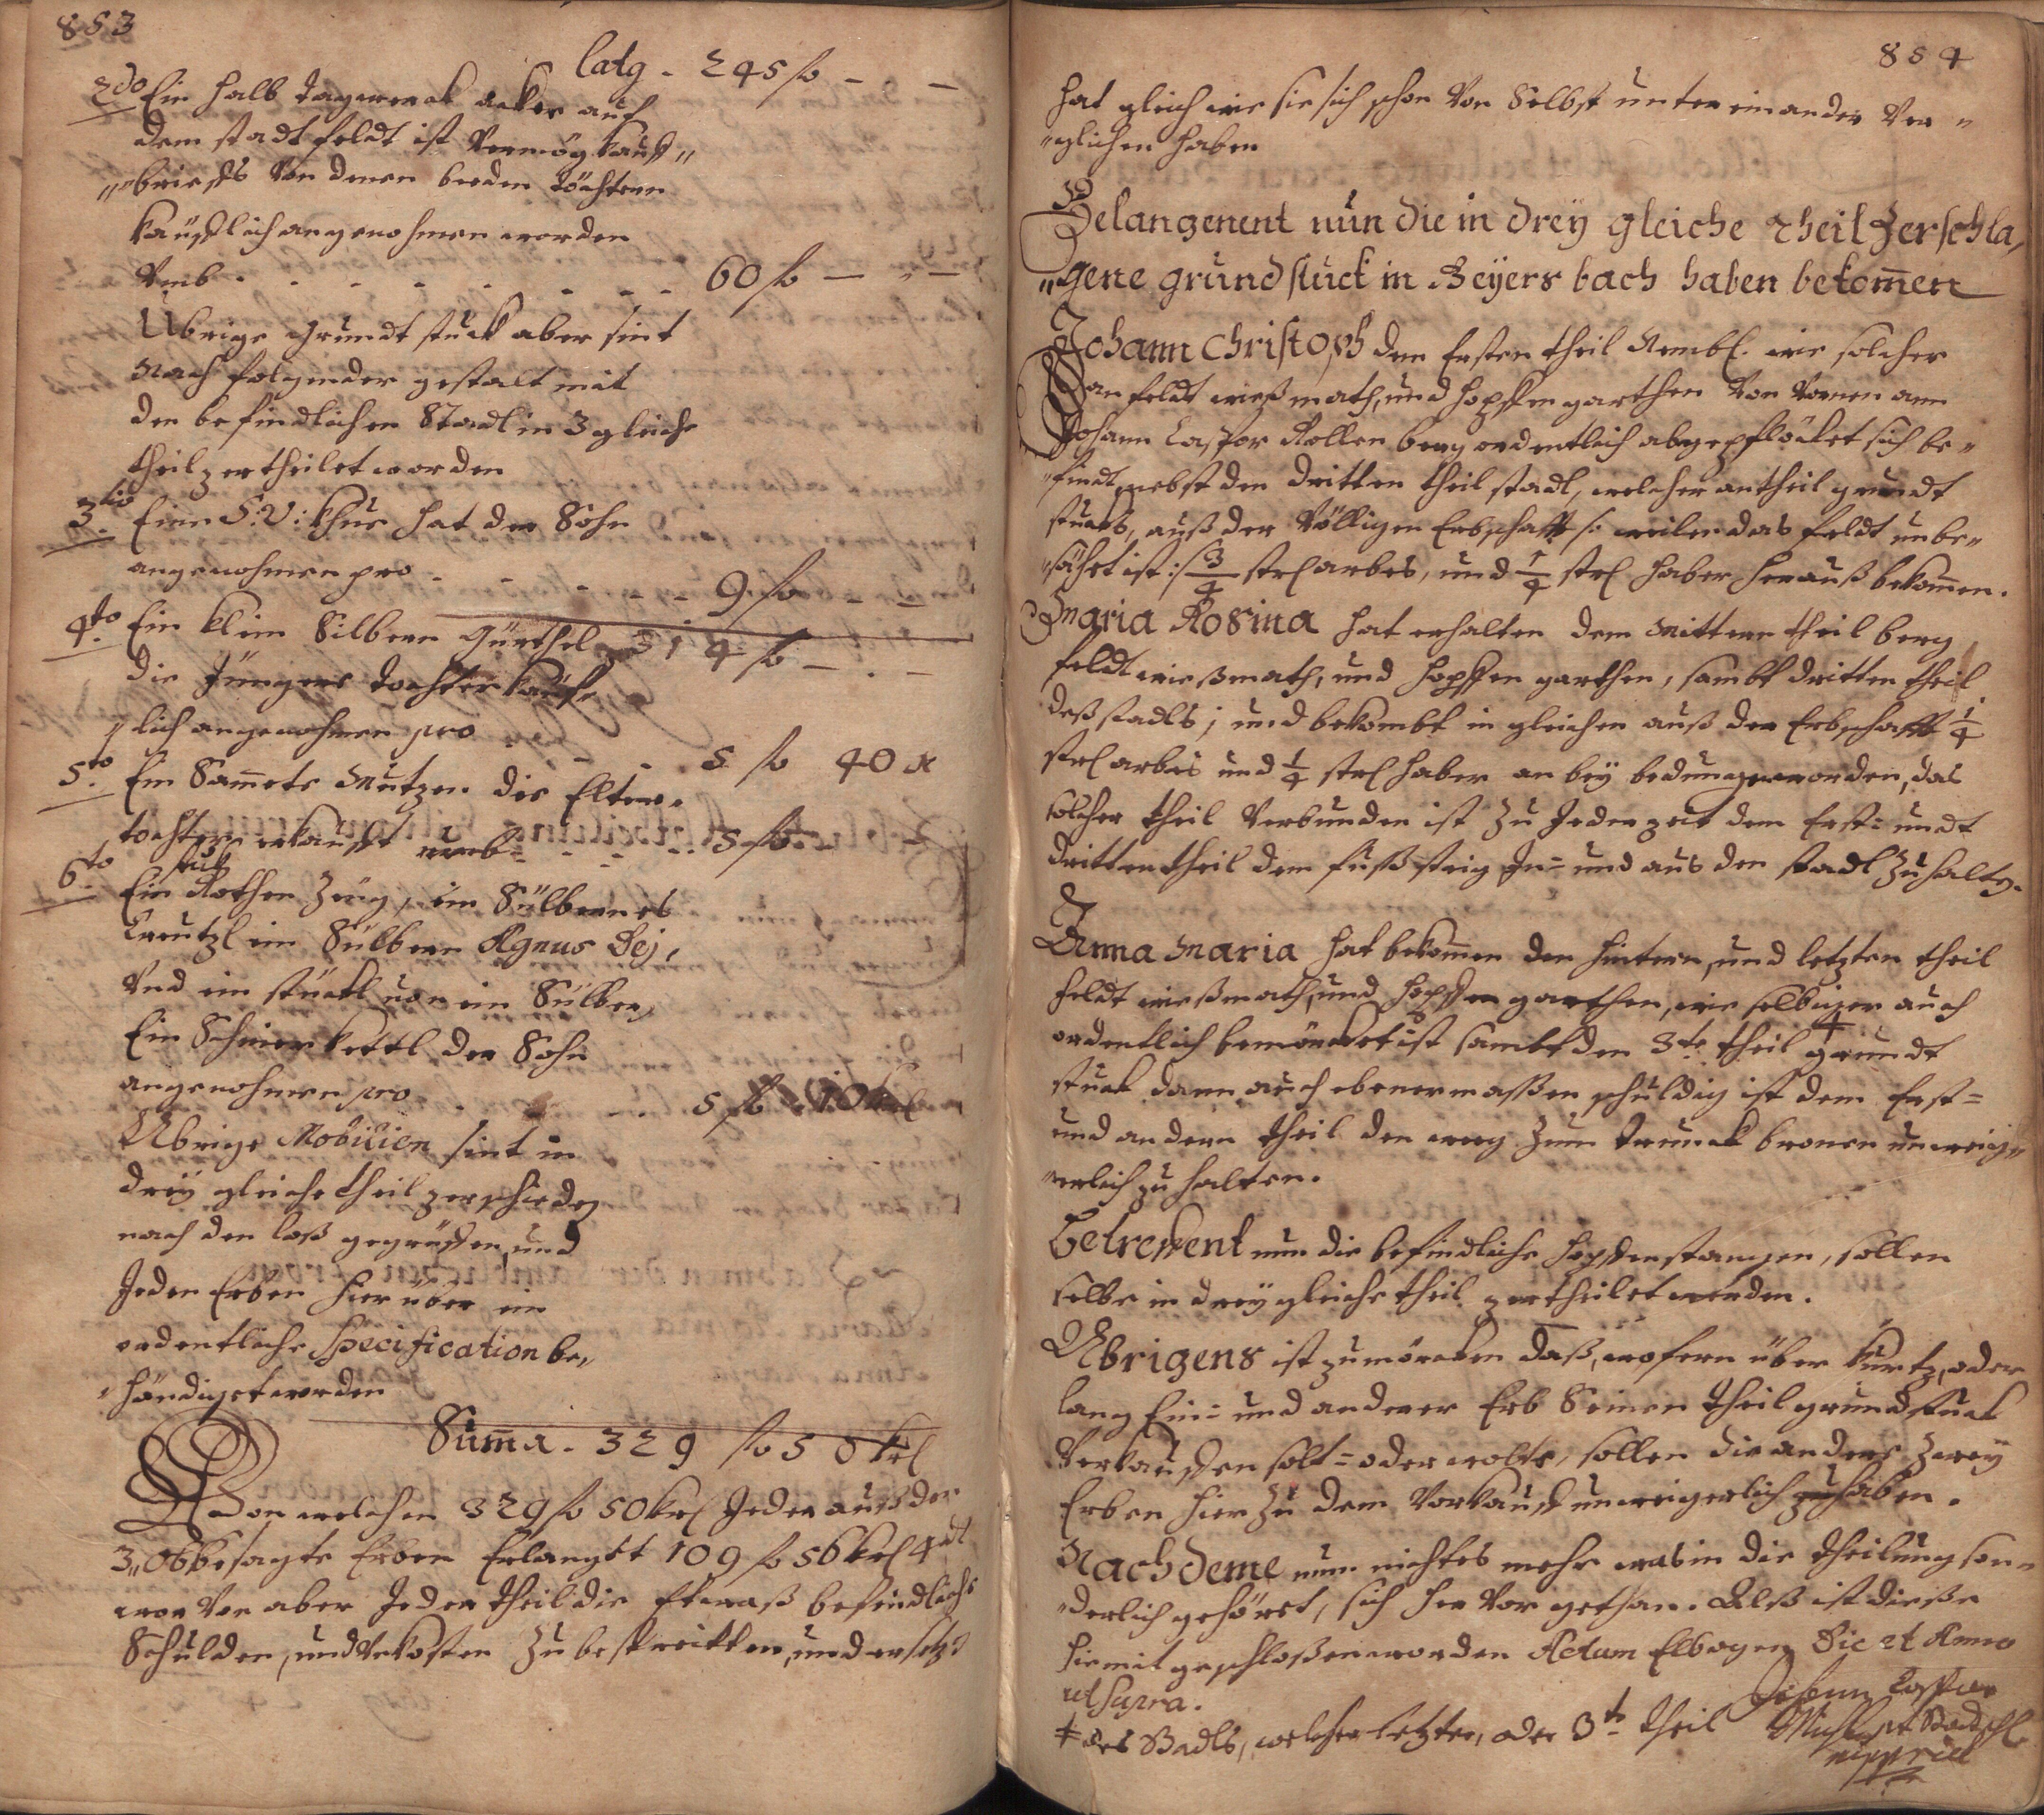 853
latq. 245 fl – –
2do Ein halb tagwerck acker auf
dem stadt feldt ist Vermög kauff„
„briefs Von denen beeden töchtern
käufflich angenohmen worden
Vmb . . . . . . . 60 fl – „ –
Ubrige grundt stuck aber sint
Nach folgender gestalt mit
den befindlichen Stadl in 3 gleiche
theil zertheilet worden
3tio Eine S: V: khue hat der Sohn
angenohmen pro . . . . . 9. fl – –
314 fl – . –
4to Ein klein Silbern Gürthel
die Jüngere tochter käuf„
„lich angenohmen pro . . . 5 fl 40 x
5to Ein Sam̄ete Mutzen die Eltere
tochter erkaufft umb . . . . 5 fl –
6to Ein stuck Rothen Zeug, ein Sülbernes
Creutzl ein Sülbern Agnus Dej,
Vnd ein stückl von ein Sülber,
Ein Schmer kettl der Sohn
angenohmen pro . . . . . 5 fl 10 krl
Ubrige Mobilien sint in
dreÿ gleiche theil zerschieden
nach den loß gegriffen, und
Jeden Erben hierüber ein
ordentliche Specification be„
„händiget worden
Sum̄a. 329 fl 50 krl
Von welchen 329 fl 50 krl Jeder auß den
3„ obbesagte Erben Erlanget 109 fl 56 krl 4 dl
wor Von aber Jeder theil die Etwaß befindliche
Schulden, und Vnkosten zu bestreitten, und ersetz:
854
hat gleich wie sie sich schon Von Selbst unter einander Ver„
„glichen haben
Belangenent nun die in dreÿ gleiche theil Zerschla„
„gene grundstuck in Beÿers bach haben bekom̄en
Johann Christoph den Ersten theil Nembl. wie solcher
an feldt wießmath, und hopffen garthen Von Vornen am
Johann Caspar Kollen berg ordentlich abgepflöcket sich be„
„findt, nebst den dritten theil stadl, welcher antheil grundt
stucks, auß der Völligen Erbschafft /: weilen das feldt unbe„
„sähet ist :/ 3/4 strl arbes, und 1/4 strl haber herauß bekom̄en.
Maria Rosina hat erhalten dem Mittern theil berg
feldt wießmath, und hopffen garthen, sambt dritten theil
deß stadls; und bekombt in gleichen auß der Erbschafft 1/4
strl arbes und 1/4 strl haber an beÿ bedungen worden, das
solcher theil Verbunden ist zu Jeder zeit dem Erst= undt
dritten theil dem fußsteig In= und aus den stadl zu halten.
Anna Maria hat bekom̄en den hintern, und letzten theil
feldt wießmath, und hopffen garthen, wie selbiger auch
ordentlich bemörcket ist sambt den 3te theil ‡ grundt
stuck dann auch ebenermassen schuldig ist dem Erst=
und andern theil den weeg zum trunck bronen unweig„
„erlich zu halten.
Betreffent nun die befindliche hopffenstangen, sollen
selbe in dreÿ gleiche theil zertheilet werden.
Ubrigens ist zumörcken daß, wofern über kurtz, oder
lang Ein= und anderer Erb Seinen theil grundstuck
Verkauffen solt= oder wolte, sollen die andere zweÿ
Erben hier Zu dem Vorkauff unweigerlich zuhaben.
Nachdeme nun nichtes mehr was in die theilung son„
„derlich gehöret, sich her Vor gethan. Alß ist dieße
hiemit geschloßen worden Actum Elbogen Die et Anno
ut supra.
‡ des Stadls, welcher letzter, oder 3te theil
Johann Caspar
mppria